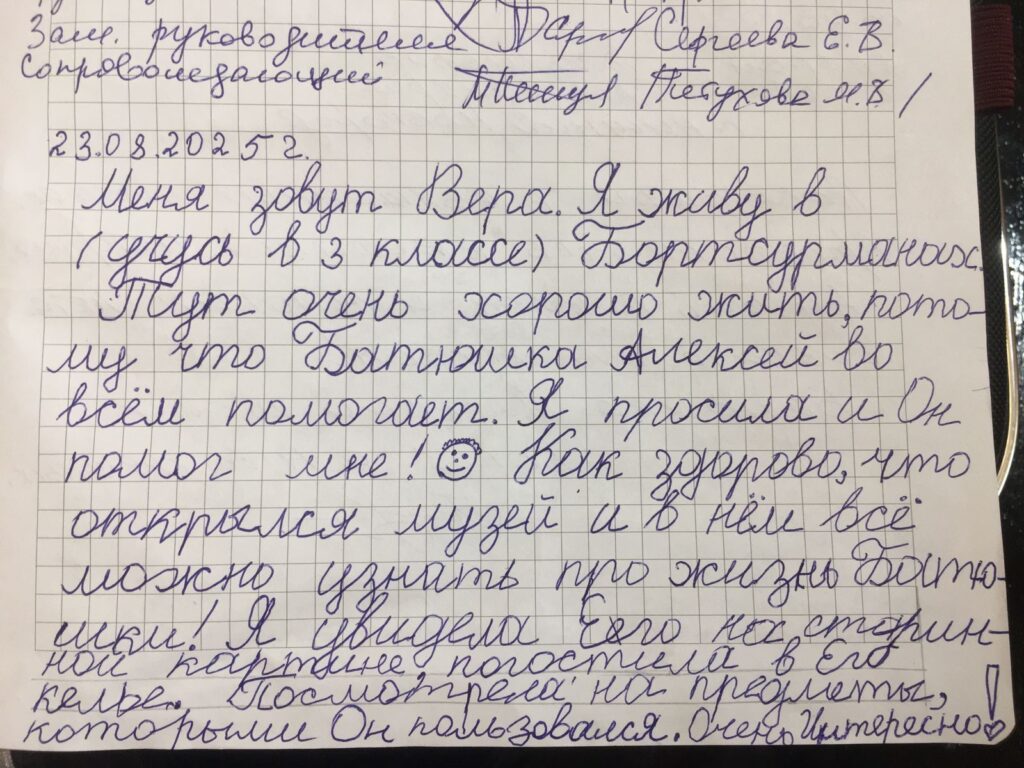 Зам. руководителя Сергеева Е.В.
Сопровождающий Петухова М.В /
23.08.2025 г.
Меня зовут Вера. Я живу в
(учусь в 3 классе) Бортсурманах.
Тут очень хорошо жить, пото-
му что Батюшка Алексей во
всём помогает. Я просила и Он
помог мне! Как здорово, что
открылся музей и в нём всё
можно узнать про жизнь Батю-
шки! Я увидела Его на старин-
ной картине, погостила в Его
келье. Посмотрела на предметы,
которыми Он пользовался. Очень Интересно!